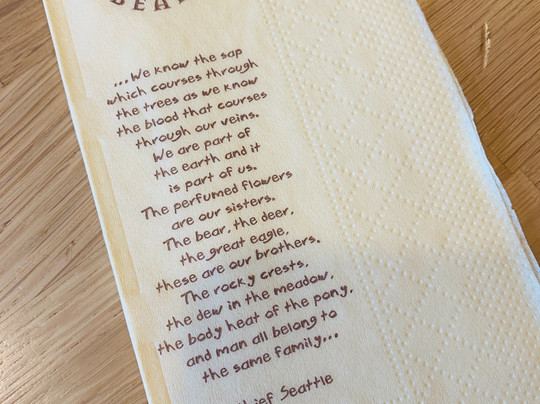 ...We know the sap
which courses through
the trees as we know
the blood that courses
through our veins.
We are part of
the earth and it
is part of us.
The perfumed flowers
are our sisters.
The bear, the deer,
the great eagle,
these are our brothers.
The rocky crests,
the dew in the meadow,
the body heat of the pony,
and man all belong to
the same family...
Seattle